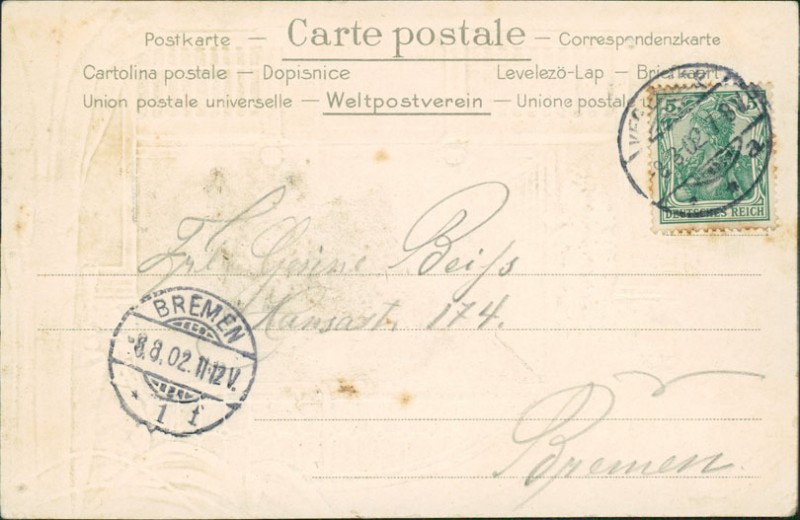 Postkarte — Carte postale — Correspondenzkarte
Cartolina postale — Dopisnice Levelezö-Lap — Briefkaart
Union postale universelle — Weltpostverein — Unione postale
5 5
DEUTSCHES REICH
Frl. Gesine Beiss
Hansastr. 174.
Bremen.
BREMEN
-8.8.02.11-12V.
* 1 f